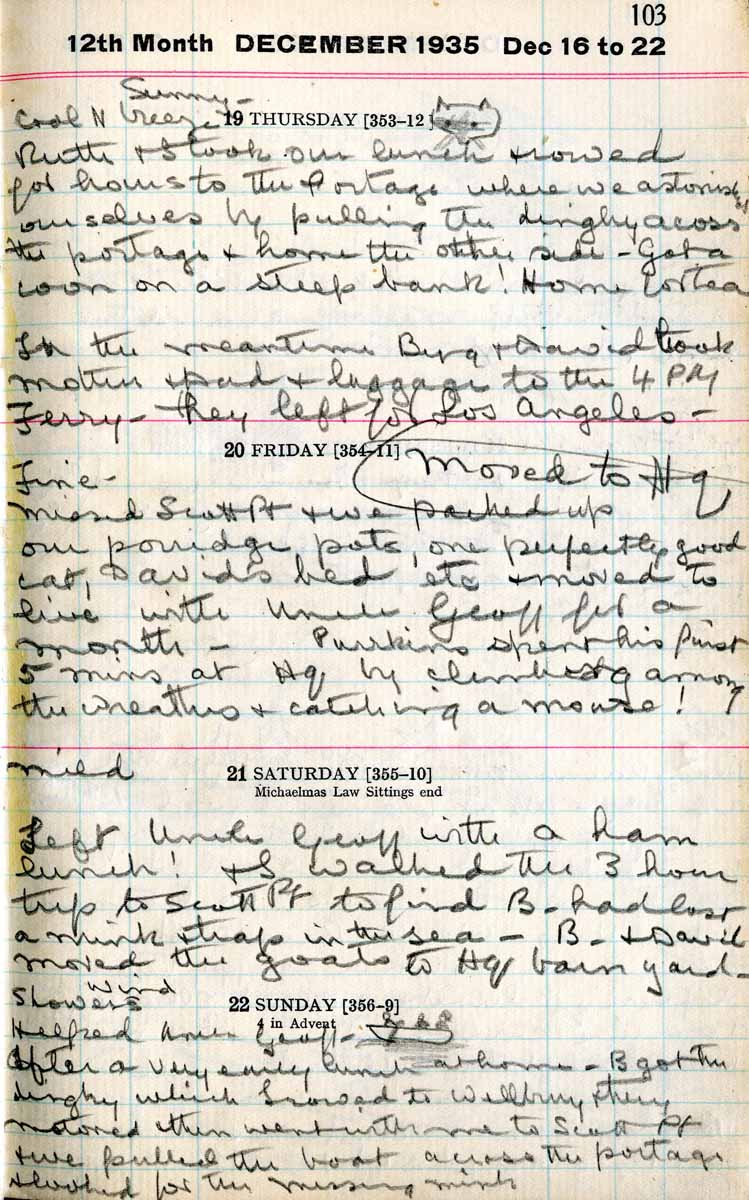 103
12th Month DECEMBER 1935 Dec 16 to 22
Sunny -
Cool N breeze 19 THURSDAY [353-12]
Ruth & I took our lunch & rowed
for hours to the Portage where we astonished
ourselves by pulling the dinghy acoss
the portage & home the other side - Got a
coon on a steep bank! Home for tea
In the meantime Byrg & David took
mother & Dad & luggage to the 4 PM
Ferry - they left for Los Angeles -
20 FRIDAY [354-11]
Moved to Hq
Fine -
Missed Scott Pt & we packed up
our porridge pots, one perfectly good
cat, David's bed etc & moved to
live with Uncle Geoff for a
month - Purrkins spent his first
5 mins at Hq by climbing among
the wreaths & catching a mouse!
mild
21 SATURDAY [355-10]
Michaelmas Law Sittings end
Left Uncle Geoff with a ham
lunch! & I walked the 3 hour
trip to Scott Pt to find B - had lost
a mink & trap in the sea - B - & David
moved the goats to Hq barn yard -
Wind
Showers
22 SUNDAY [356-9]
4 in Advent
Helped Uncle Geoff -
After a very early lunch at home - B got the
dinghy which I rowed to Wellbury & they
motored then went with me to Scott Pt
& we pulled the boat across the portage
& looked for the missing mink